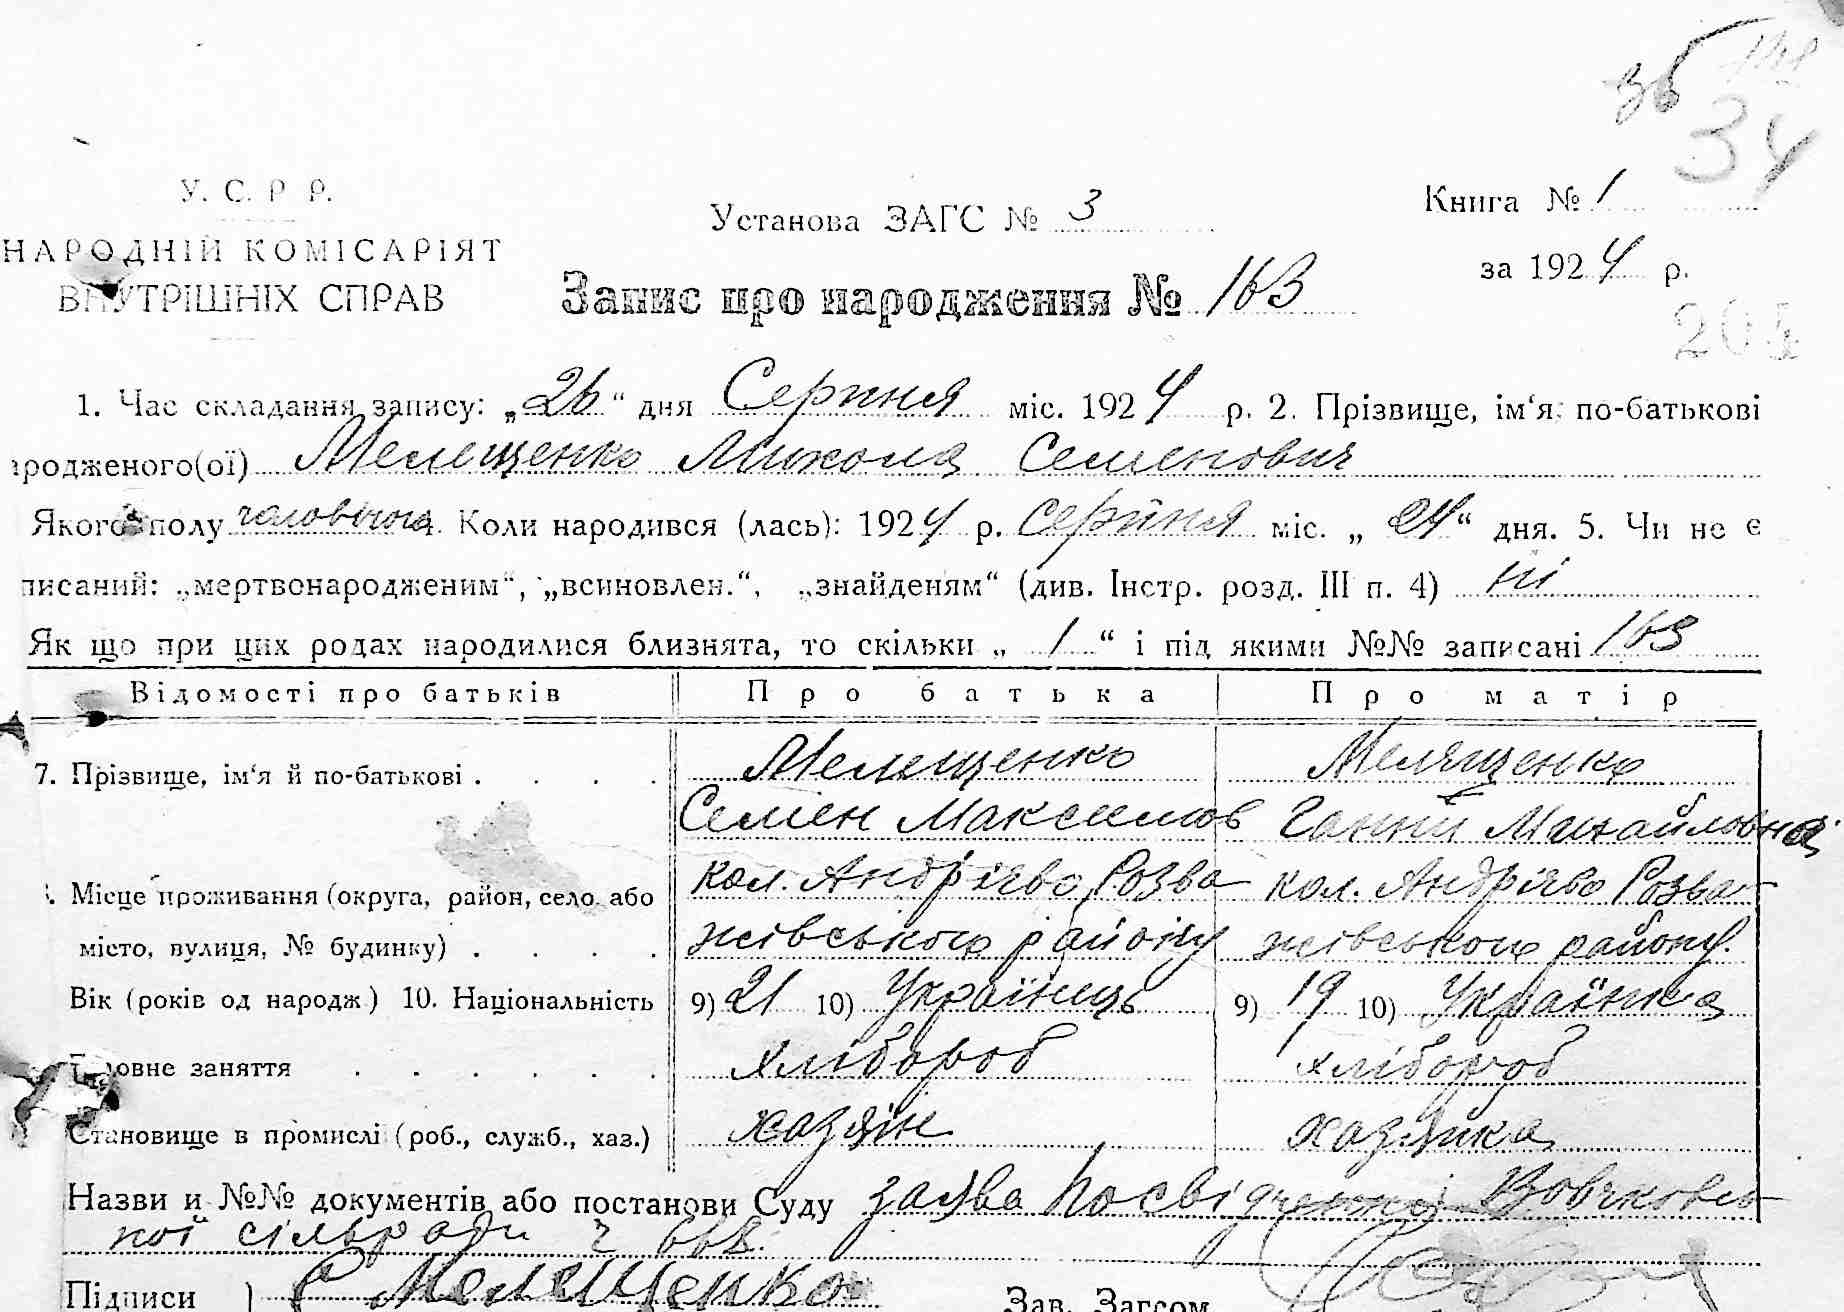 34
У. С. Р Р.
НАРОДНІЙ КОМІСАРІЯТ
ВНУТРІШНІХ СПРАВ
Установа ЗАГС № 3
Книга № 1
за 1924 р.
Запис про народження № 163
204
1. Час складання запису: „26“ дня Серпня міс. 1924 р. 2. Прізвище, ім‘я, по-батькові
ародженого(ої) Мелещенко Микола Семенович
Якого полу чоловічого 4. Коли народився (лась): 1924 р. серпня міс. „24“ дня. 5. Чи не є
писаний: „мертвонародженим“, „всиновлен.“, „знайденям“ (див. Інстр. розд. III п. 4) ні
Як що при цих родах народилися близнята, то скільки „1“ і під якими №№ записані 163
Відомості про батьків Про батька Про матір
7. Прізвище, ім‘я й по-батькові . . . . Мелещенко Мелященко
Семен Максимов Ганна Михайловна
Місце проживання (округа, район, село або кол. Андрієво Розва кол. Андрієво Розва-
місто, вулиця, № будинку) . . . . жівського району жівського району.
Вік (років од народж) 10. Національність 9) 21 10) Українець 9) 19 10) Українка
Головне заняття . . . . . . хлібороб хлібороб
Становище в промислі (роб., служб., хаз.) хазяїн хазяйка
Назви и №№ документів або постанови Суду заява посвідченні Вовчковсь
кої сільради ч
Підписи ) С Мелещенко Зав. Загсом